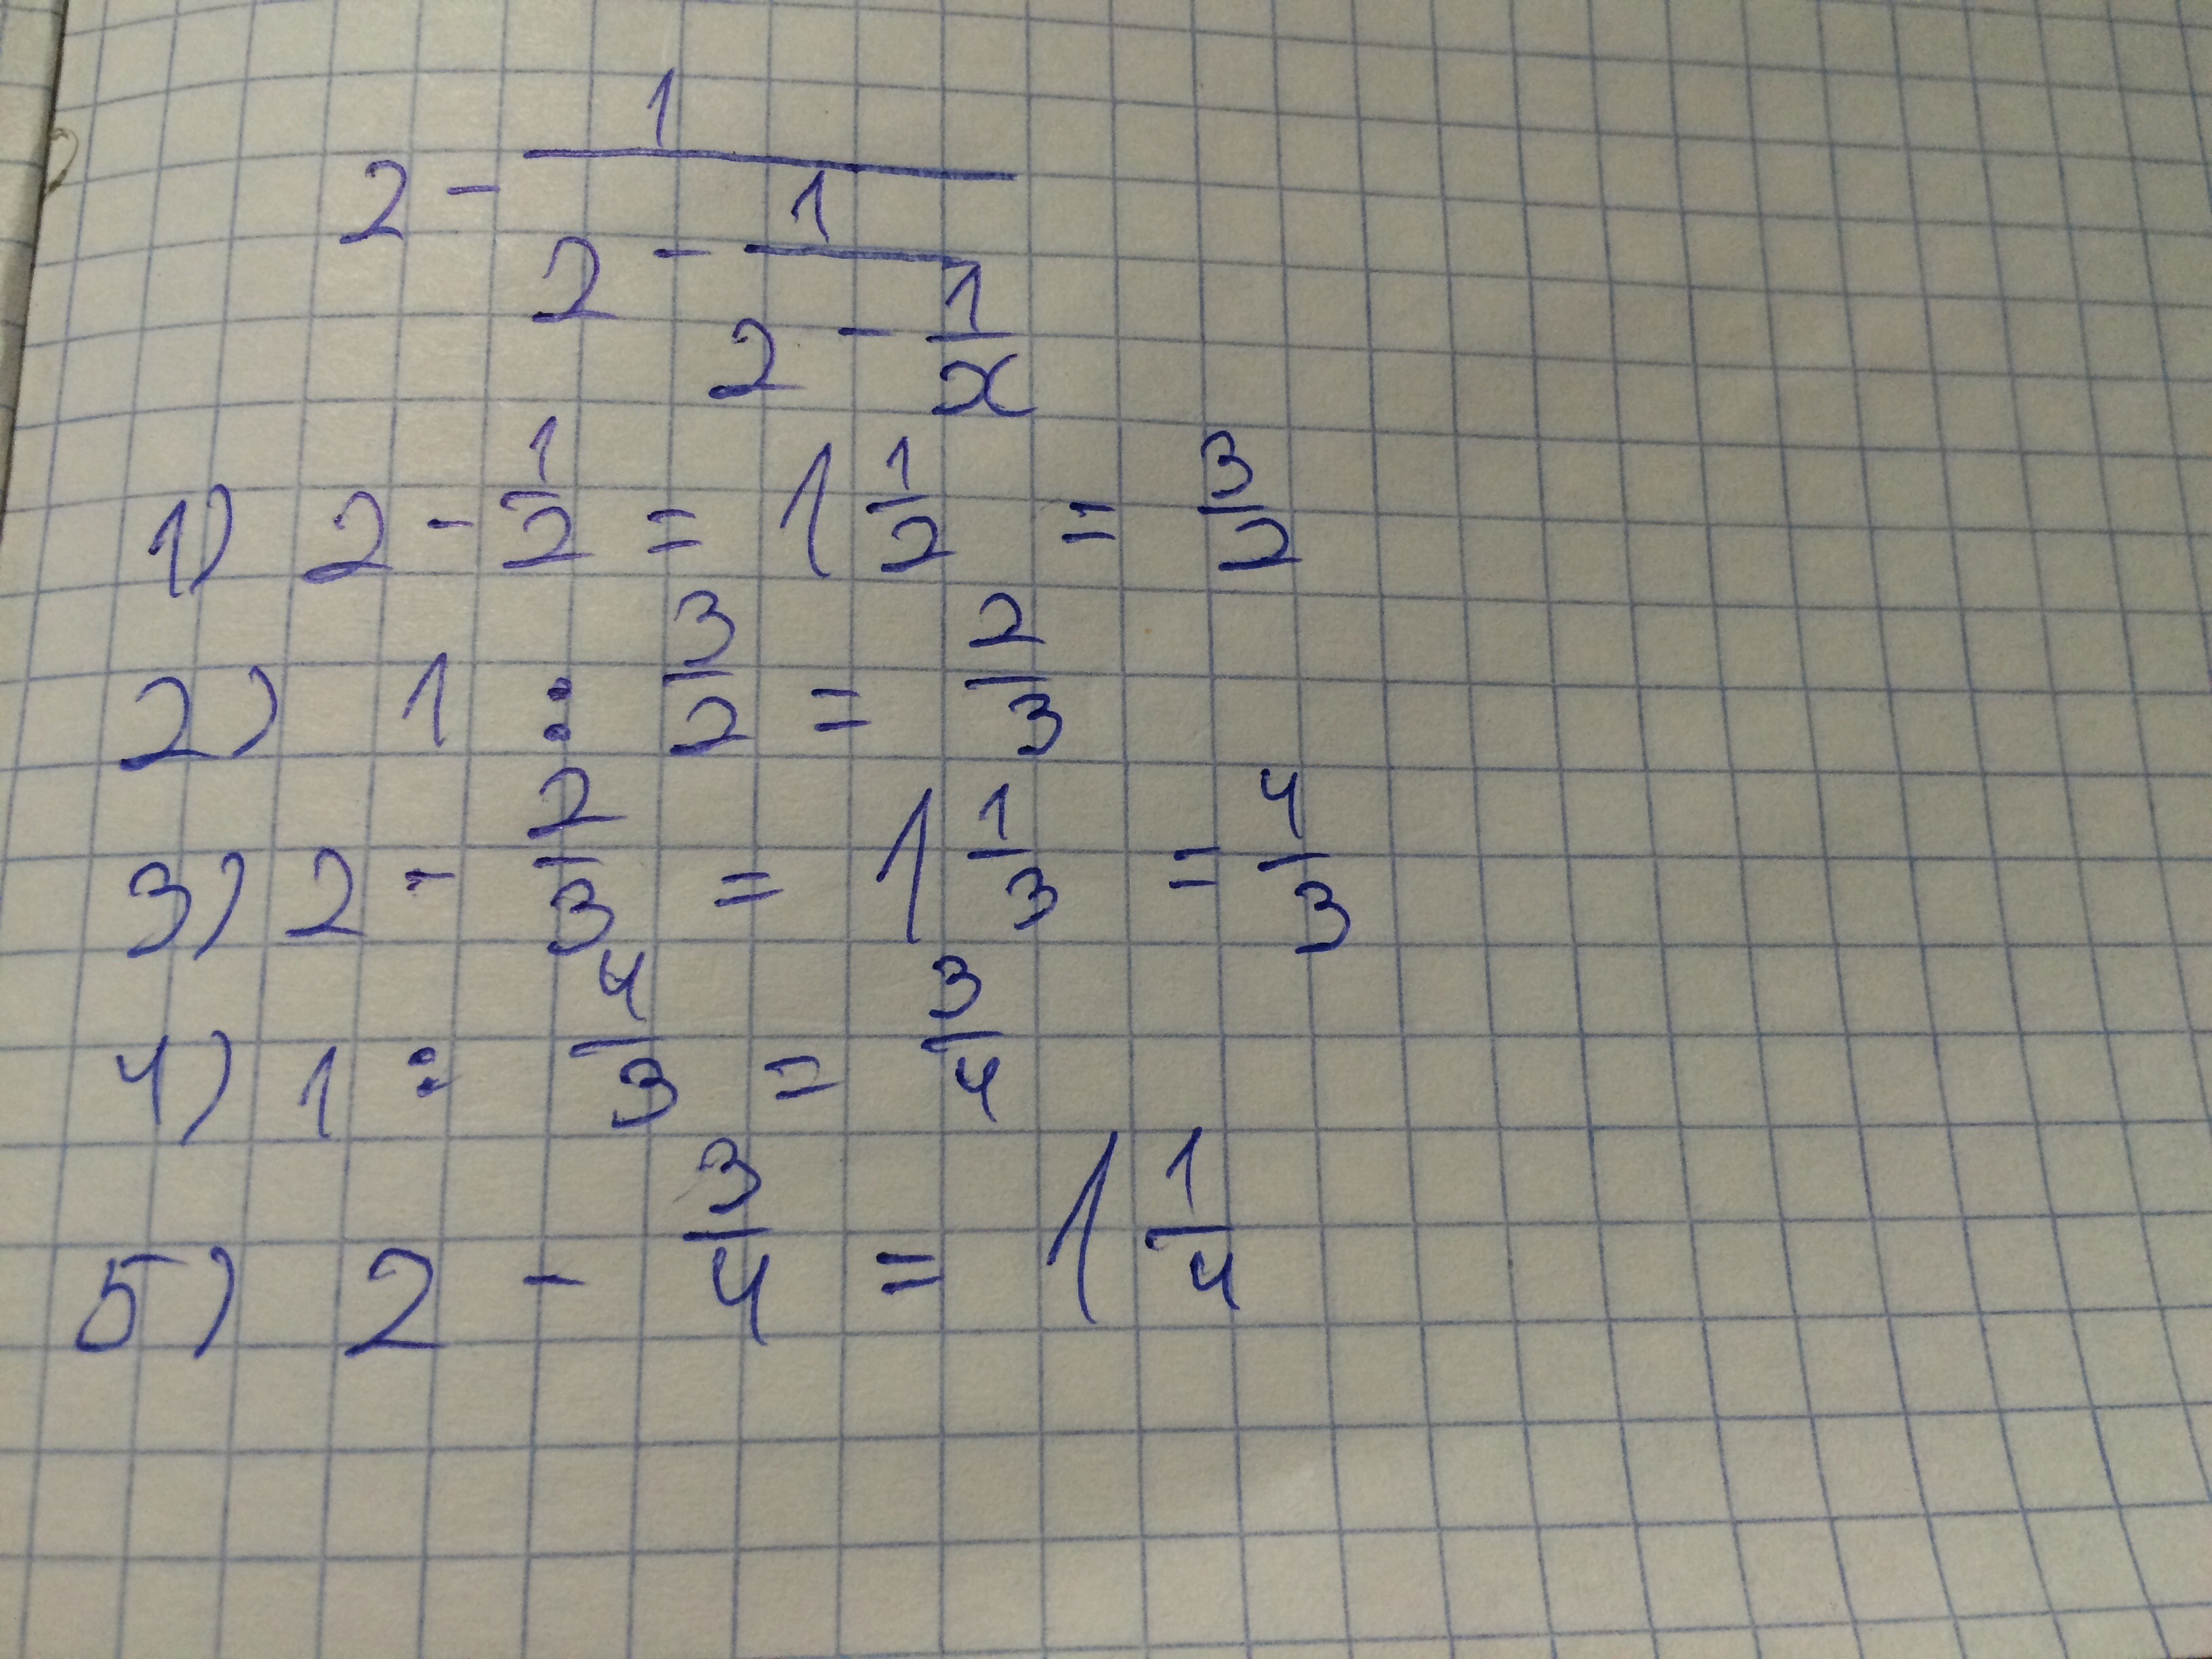 2 - 1
2 - 1
2 - 1/x
1) 2 - 1/2 = 1 1/2 = 3/2
2) 1 : 3/2 = 2/3
3) 2 - 2/3 = 1 1/3 = 4/3
4) 1 : 4/3 = 3/4
5) 2 - 3/4 = 1 1/4